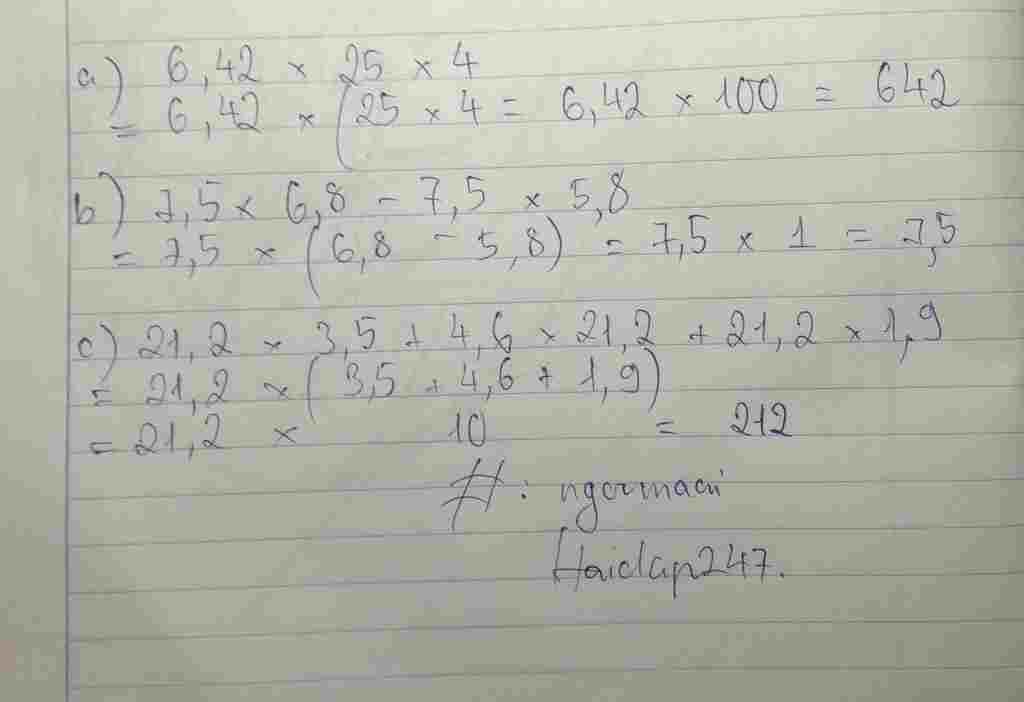 a) 6,42 × 25 × 4
= 6,42 × (25 × 4 = 6,42 × 100 = 642
b) 7,5 × 6,8 - 7,5 × 5,8
= 7,5 × (6,8 - 5,8) = 7,5 × 1 = 7,5
c) 21,2 × 3,5 + 4,6 × 21,2 + 21,2 × 1,9
= 21,2 × (3,5 + 4,6 + 1,9)
= 21,2 × 10 = 212
#:
Hoidap247.